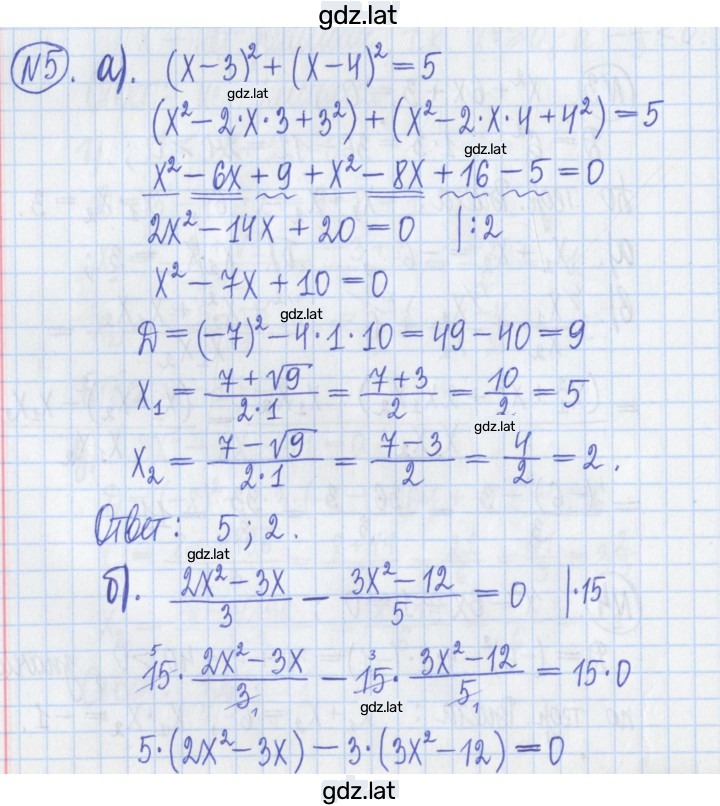 gdz.lat
№5. а). (x-3)²+(x-4)²=5
gdz.lat
(x²-2·x·3+3²)+(x²-2·x·4+4²)=5
gdz.lat
x²-6x+9+x²-8x+16-5=0
2x²-14x+20=0 |:2
x²-7x+10=0
gdz.lat
Д=(-7)²-4·1·10=49-40=9
x₁ = (7+√9)/(2·1) = (7+3)/2 = 10/2 = 5
gdz.lat
x₂ = (7-√9)/(2·1) = (7-3)/2 = 4/2 = 2.
Ответ: 5; 2.
gdz.lat
б). (2x²-3x)/3 - (3x²-12)/5 = 0 |·15
⁵15·(2x²-3x)/3₁ - ³15·(3x²-12)/5₁ = 15·0
gdz.lat
5·(2x²-3x)-3·(3x²-12)=0
gdz.lat